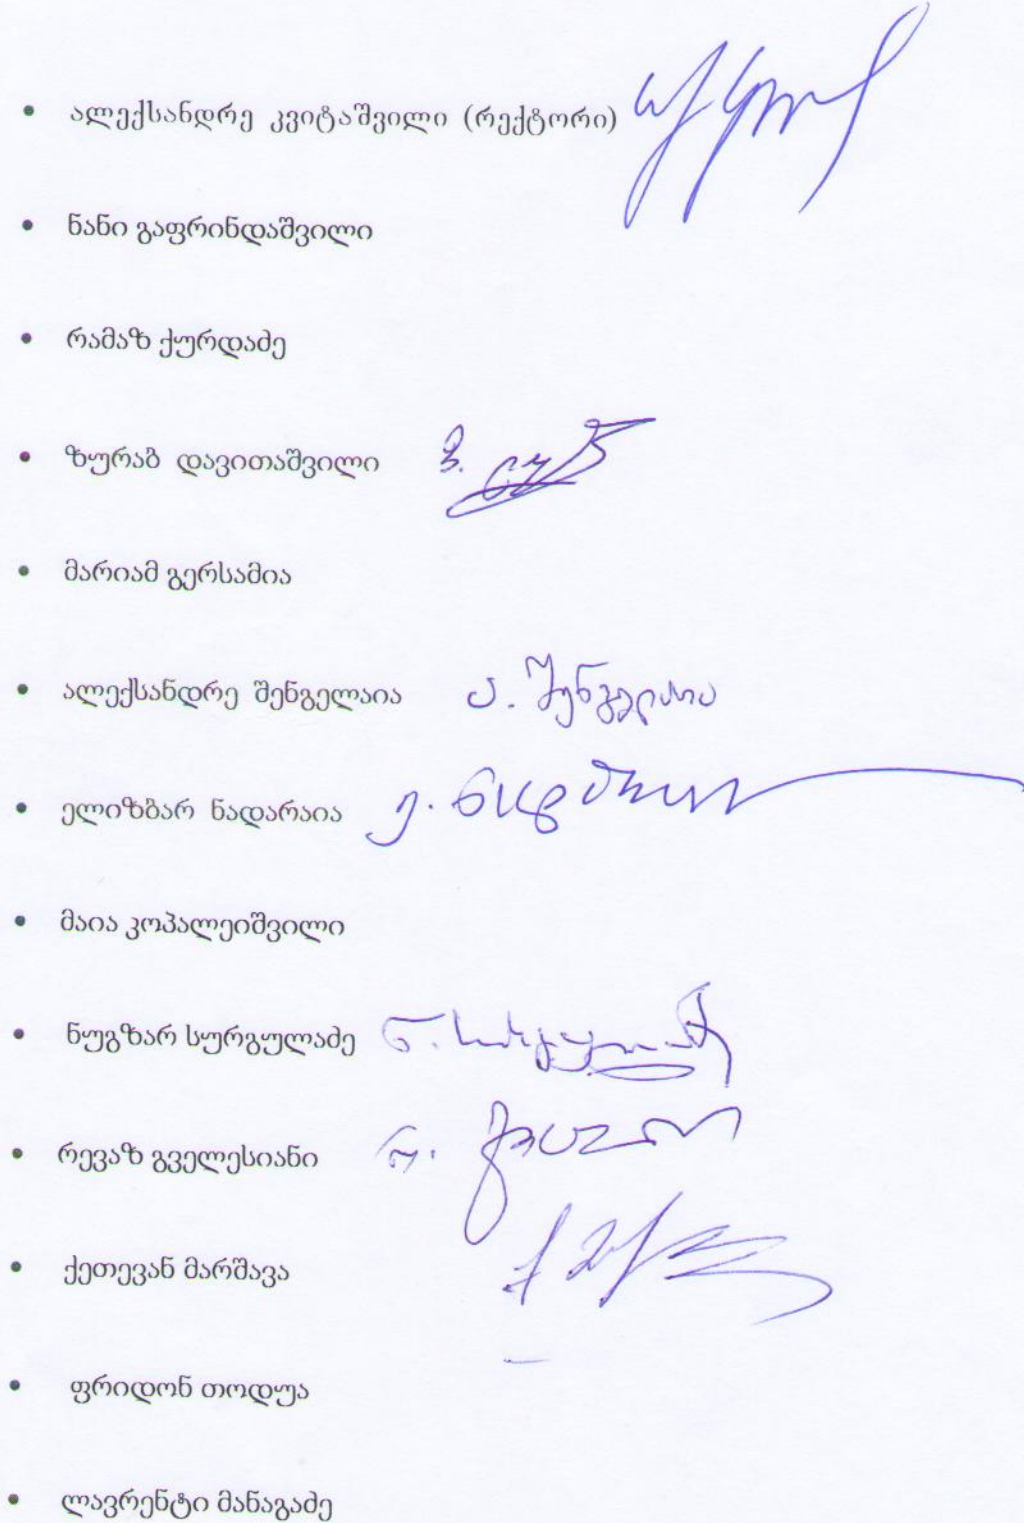 • ალექსანდრე კვიტაშვილი (რექტორი)
• ნანი გაფრინდაშვილი
• რამაზ ქურდაძე
• ზურაბ დავითაშვილი
• მარიამ გერსამია
• ალექსანდრე შენგელაია ა. შენგელაია
• ელიზბარ ნადარაია ე. ნადარაია
• მაია კოპალეიშვილი
• ნუგზარ სურგულაძე
• რევაზ გველესიანი
• ქეთევან მარშავა
• ფრიდონ თოდუა
• ლავრენტი მანაგაძე